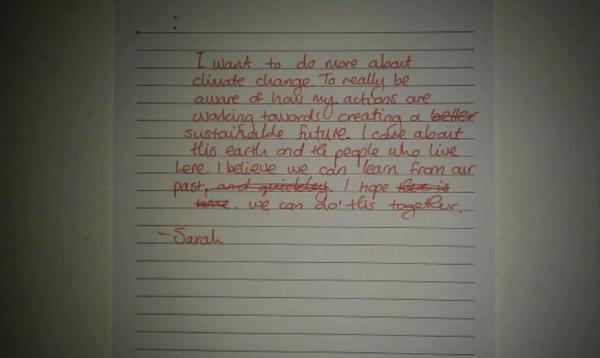 I want to do more about
climate change. To really be
aware of how my actions are
working towards creating a better
sustainable future. I care about
this earth and the people who live
here. I believe we can learn from our
past, and quickley. I hope there is
time. we can do this together.
- Sarah